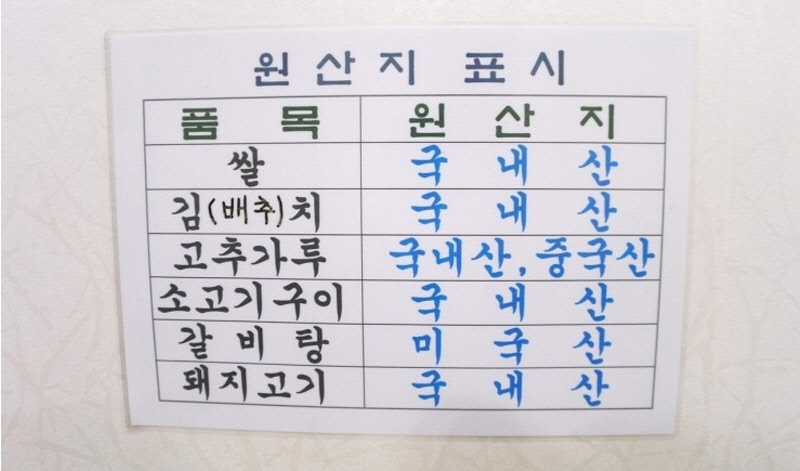 원산지 표시
품목 원산지
쌀 국내산
김(배추)치 국내산
고추가루 국내산, 중국산
소고기구이 국내산
갈비탕 미국산
돼지고기 국내산